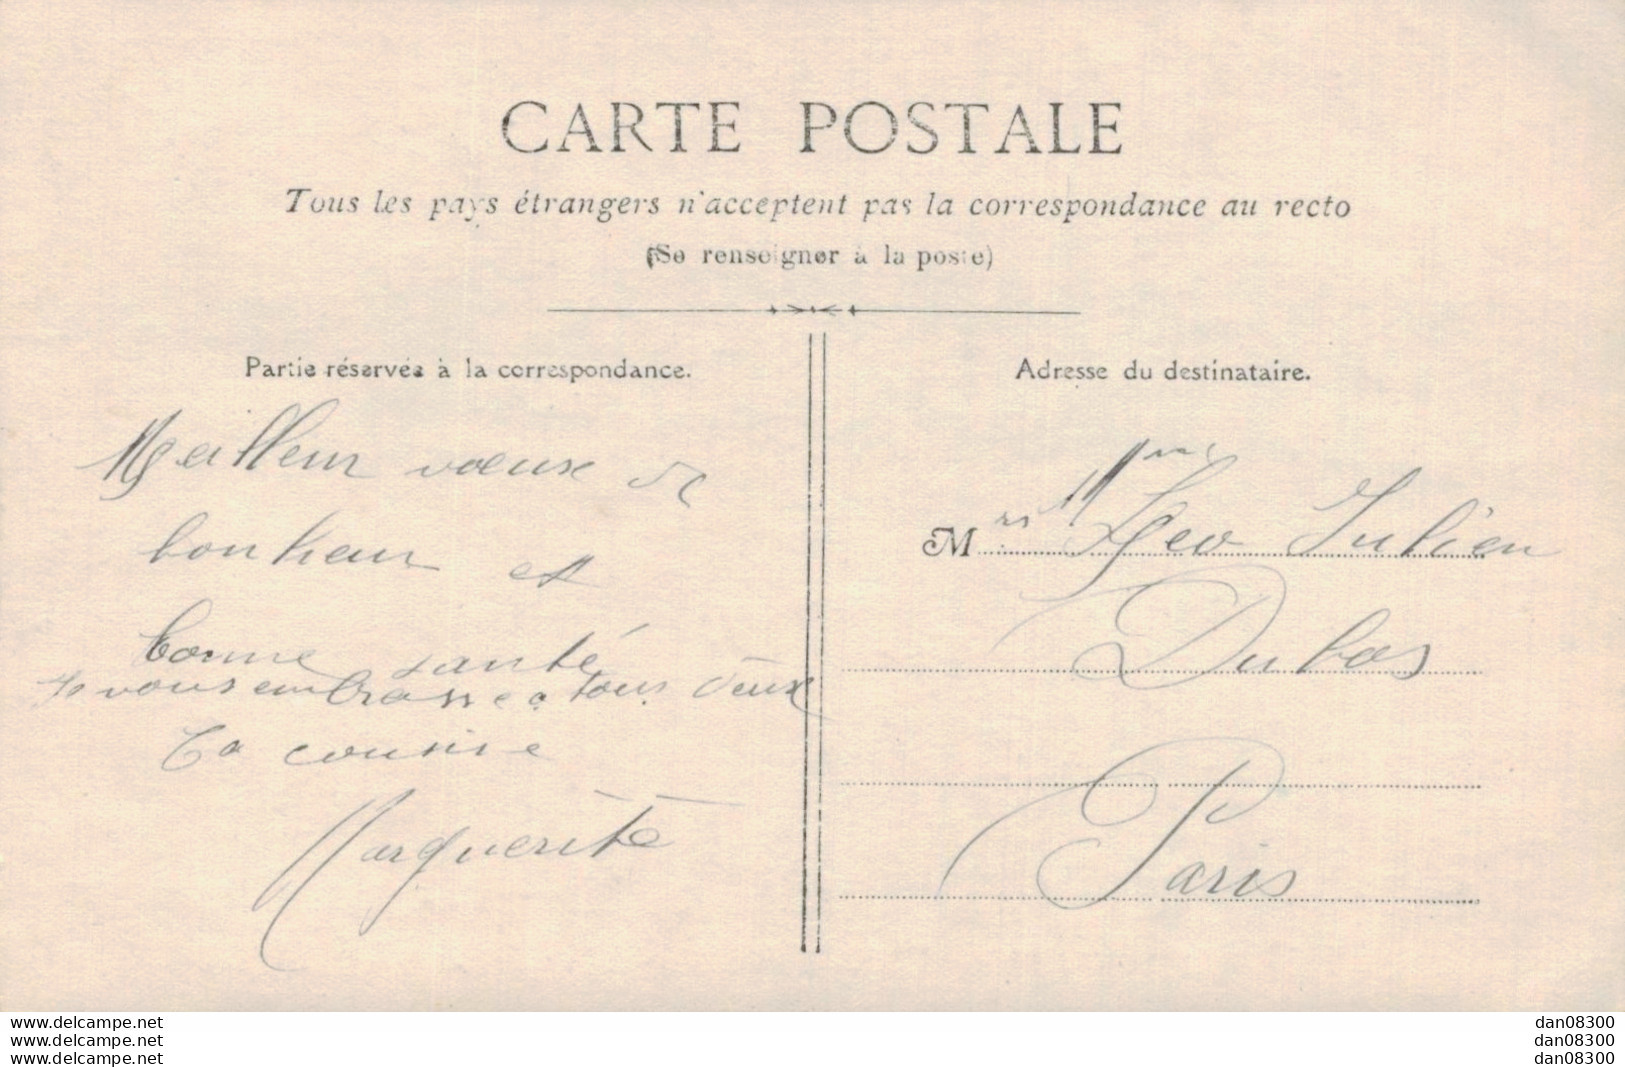 CARTE POSTALE
Tous les pays étrangers n'acceptent pas la correspondance au recto
(Se renseigner à la poste)
Partie réservée à la correspondance.
Meilleur vœux de
bonheur et
bonne santé
Je vous embrasse a tous deux
Ta cousine
Marguerite
Adresse du destinataire.
Mrs Mme Leo Julien
Dubas
Paris
www.delcampe.net
www.delcampe.net
www.delcampe.net
dan08300
dan08300
dan08300